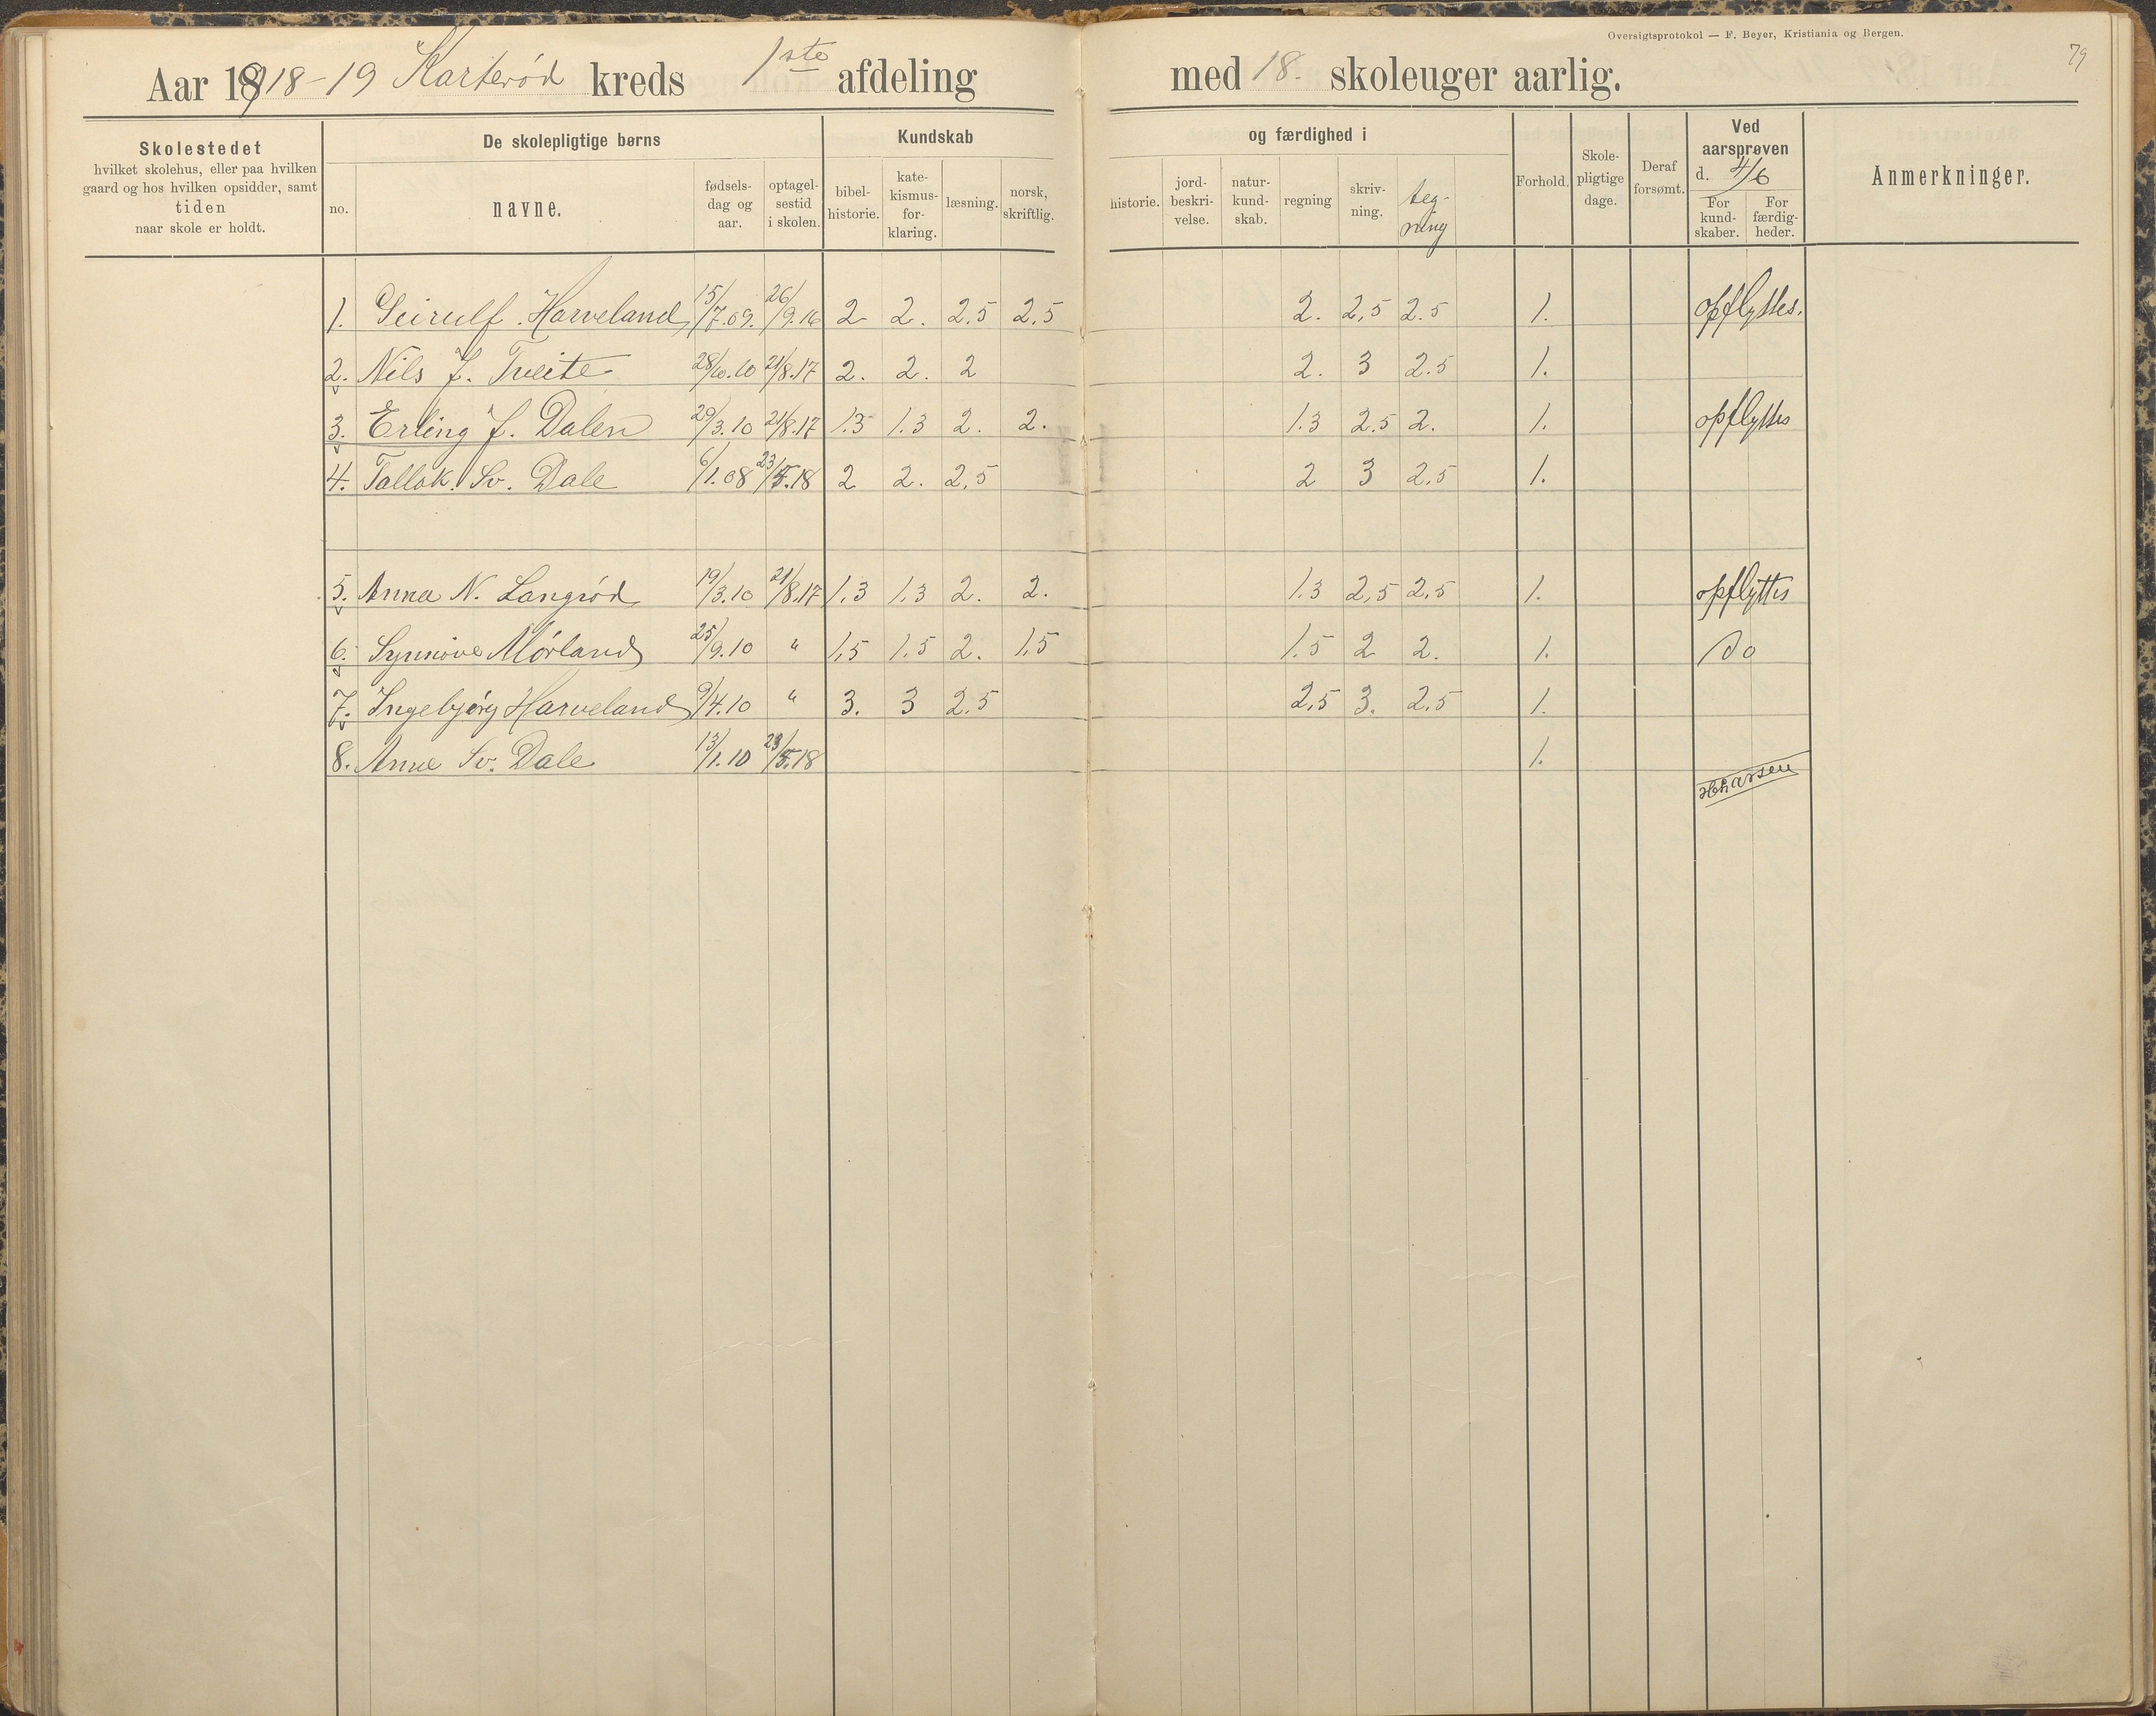 Oversigtsprotokol — F. Beyer, Kristiania og Bergen.
79
Aar 1918-19 Karterød kreds 1ste afdeling med 18. skoleuger aarlig.
Skolestedet
hvilket skolehus, eller paa hvilken
gaard og hos hvilken opsidder, samt
tiden
naar skole er holdt.
De skolepligtige børns
no.
navne.
fødsels-
dag og
aar.
optagel-
sestid
i skolen.
Kundskab
bibel-
historie.
kate-
kismus-
for-
klaring.
læsning.
norsk,
skriftlig.
og færdighed i
historie.
jord-
beskri-
velse.
natur-
kund-
skab.
regning
skriv-
ning.
teg-
ning
Forhold.
Skole-
pligtige
dage.
Deraf
forsømt.
Ved
aarsprøven
d. 4/6
For
kund-
skaber.
For
færdig-
heder.
Anmerkninger.
1. Geirulf Harveland 15/7.09. 26/9.16 2 2. 2.5 2.5 2. 2,5 2.5 1. opflyttes.
2. Nils J. Tveite 28/10.10 21/8.17 2. 2. 2 2. 3 2.5 1.
3. Erling J. Dalen 29/3.10 21/8.17 1.3 1.3 2. 2. 1.3 2.5 2. 1. opflyttes
4. Tallak Sv. Dale 6/1.08 23/5.18 2 2. 2,5 2 3 2,5 1.
5. Anna N. Langrød 19/3.10 21/8.17 1.3 1.3 2. 2. 1.3 2,5 2,5 1. opflyttes
6. Synnøve Mørland 25/9.10 " 1,5 1.5 2. 1,5 1.5 2 2. 1. Do
7. Ingebjørg Harveland 9/4.10 " 3. 3 2.5 2,5 3. 2,5 1.
8. Anne Sv. Dale 13/1.10 23/5.18 1.